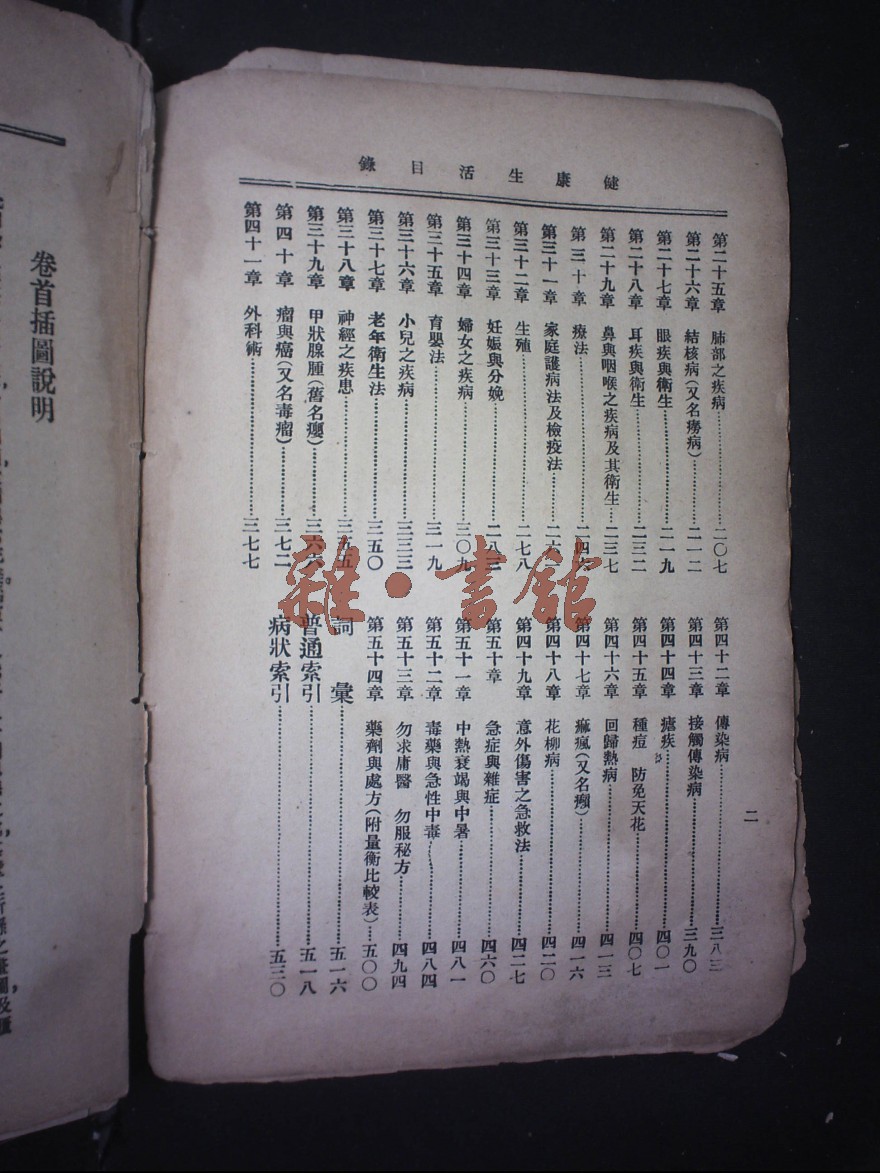 健康生活目錄
第二十五章 肺部之疾病 二〇七
第二十六章 結核病(又名癆病) 二一二
第二十七章 眼疾與衛生 二一九
第二十八章 耳疾與衛生 二三二
第二十九章 鼻與咽喉之疾病及其衛生 二三七
第三十章 療法 二四六
第三十一章 家庭護病法及檢疫法
第三十二章 生殖 二七八
第三十三章 妊娠與分娩 二八三
第三十四章 婦女之疾病 三〇九
第三十五章 育嬰法 三一九
第三十六章 小兒之疾病 三三三
第三十七章 老年衛生法 三五〇
第三十八章 神經之疾患 三五五
第三十九章 甲狀腺腫(舊名癭) 三六六
第四十章 瘤與癌(又名毒瘤) 三七二
第四十一章 外科術 三七七
第四十二章 傳染病 三八三
第四十三章 接觸傳染病 三九〇
第四十四章 瘧疾 四〇一
第四十五章 種痘 防免天花 四〇七
第四十六章 回歸熱病 四一三
第四十七章 痲瘋(又名癩) 四一六
第四十八章 花柳病 四二〇
第四十九章 意外傷害之急救法 四二七
第五十章 急症與雜症 四六〇
第五十一章 中熱衰竭與中暑 四八一
第五十二章 毒藥與急性中毒 四八四
第五十三章 勿求庸醫 勿服秘方 四九四
第五十四章 藥劑與處方(附量衡比較表) 五〇〇
詞彙 五一六
普通索引 五一八
病狀索引 五三〇
二
卷首插圖說明
雜·書館